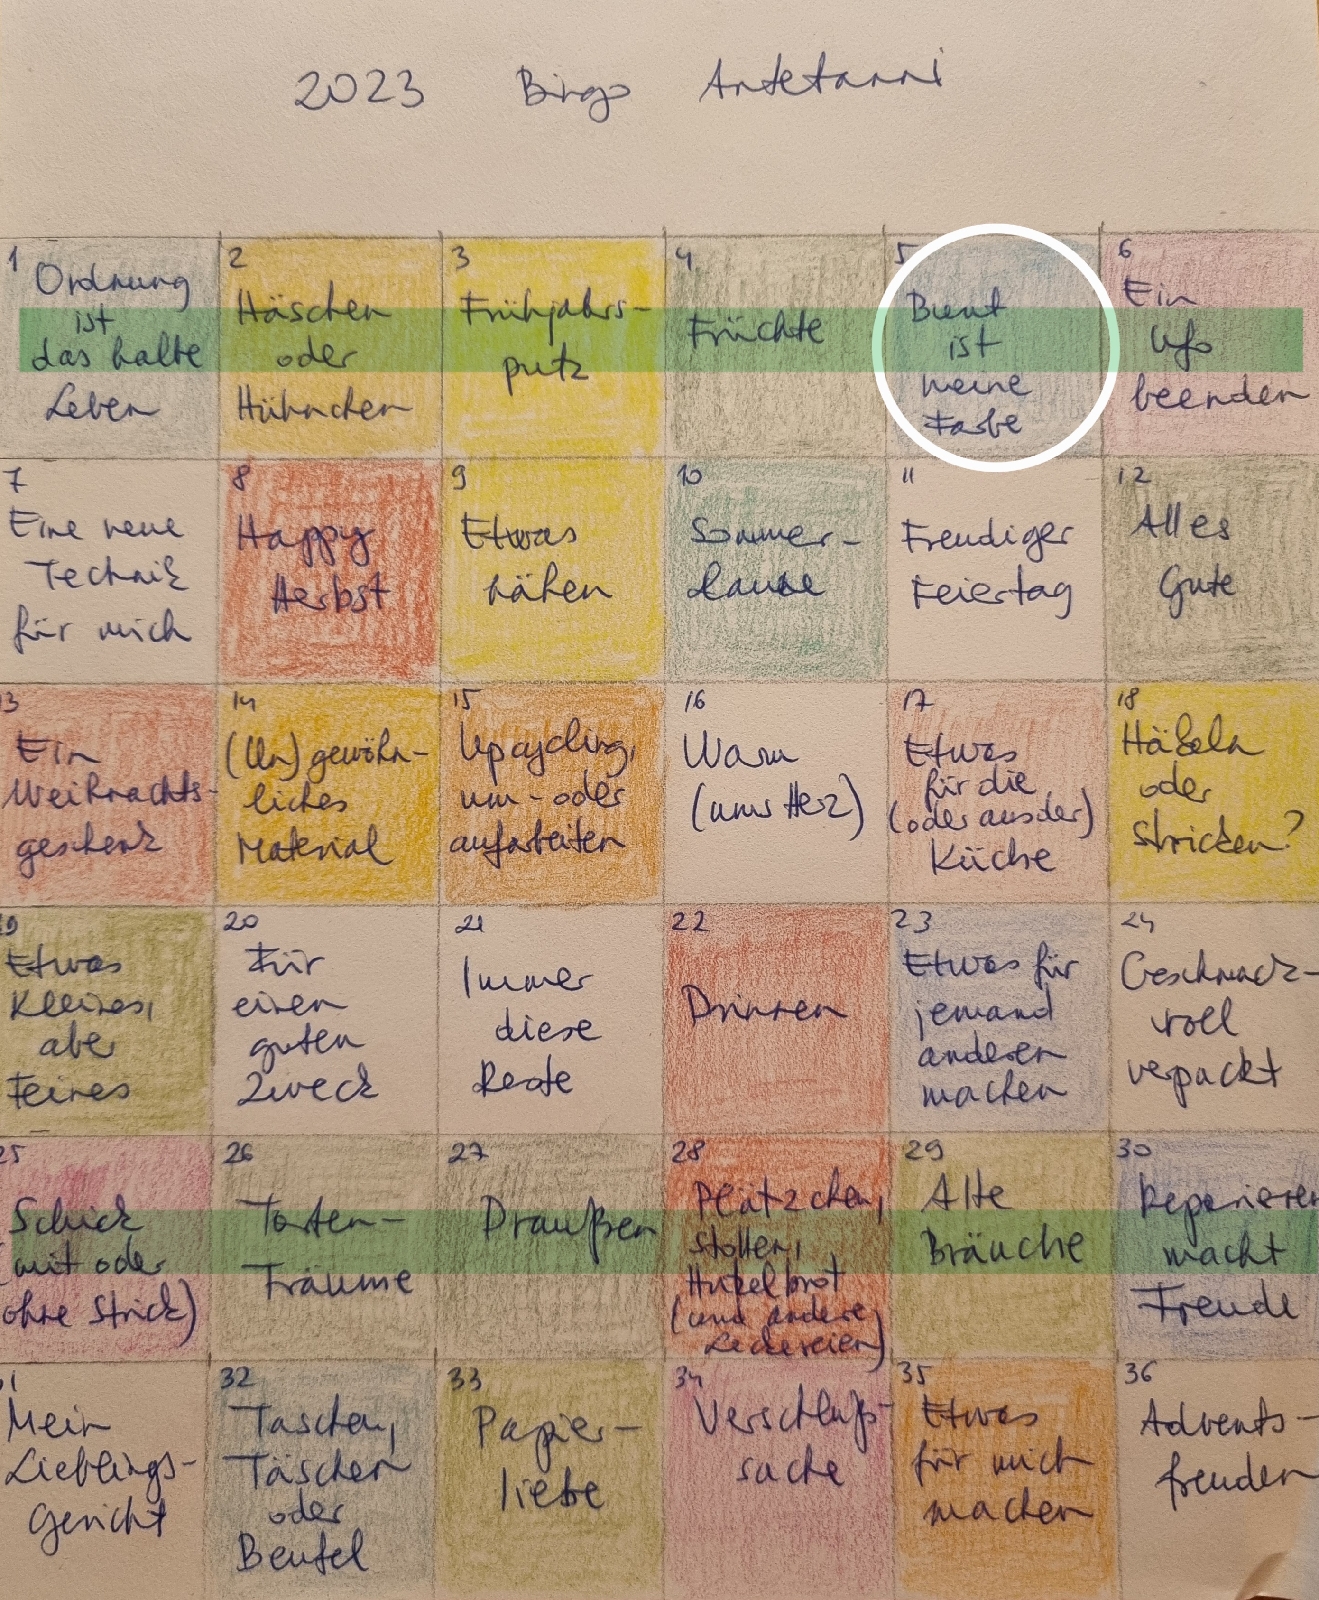 2023 Bingo Antetanni
1
Ordnung
ist
das halbe
Leben
2
Häschen
oder
Hühnchen
3
Frühjahrs-
putz
4
Früchte
5
Bunt
ist
meine
Farbe
6
Ein
Ufo
beenden
7
Eine neue
Technik
für mich
8
Happy
Herbst
9
Etwas
nähen
10
Sommer-
laune
11
Freudiger
Feiertag
12
Alles
Gute
13
Ein
Weihnachts-
geschenk
14
(Un)gewöhn-
liches
Material
15
Upcycling,
um- oder
aufarbeiten
16
Warm
(ums Herz)
17
Etwas
für die
(oder aus der)
Küche
18
Häkeln
oder
Stricken?
19
Etwas
Kleines,
aber
Feines
20
Für
einen
guten
Zweck
21
Immer
diese
Reste
22
Drinnen
23
Etwas für
jemand
anderen
machen
24
Geschmack-
voll
verpackt
25
Schick
(mit oder
ohne Strick)
26
Torten-
Träume
27
Draußen
28
Plätzchen,
Stollen,
Hutzelbrot
(und andere
Leckereien)
29
Alte
Bräuche
30
Reparieren
macht
Freude
31
Mein
Lieblings-
Gericht
32
Taschen,
Täschen
oder
Beutel
33
Papier-
liebe
34
Verschluß-
sache
35
Etwas
für mich
machen
36
Advents-
freuden